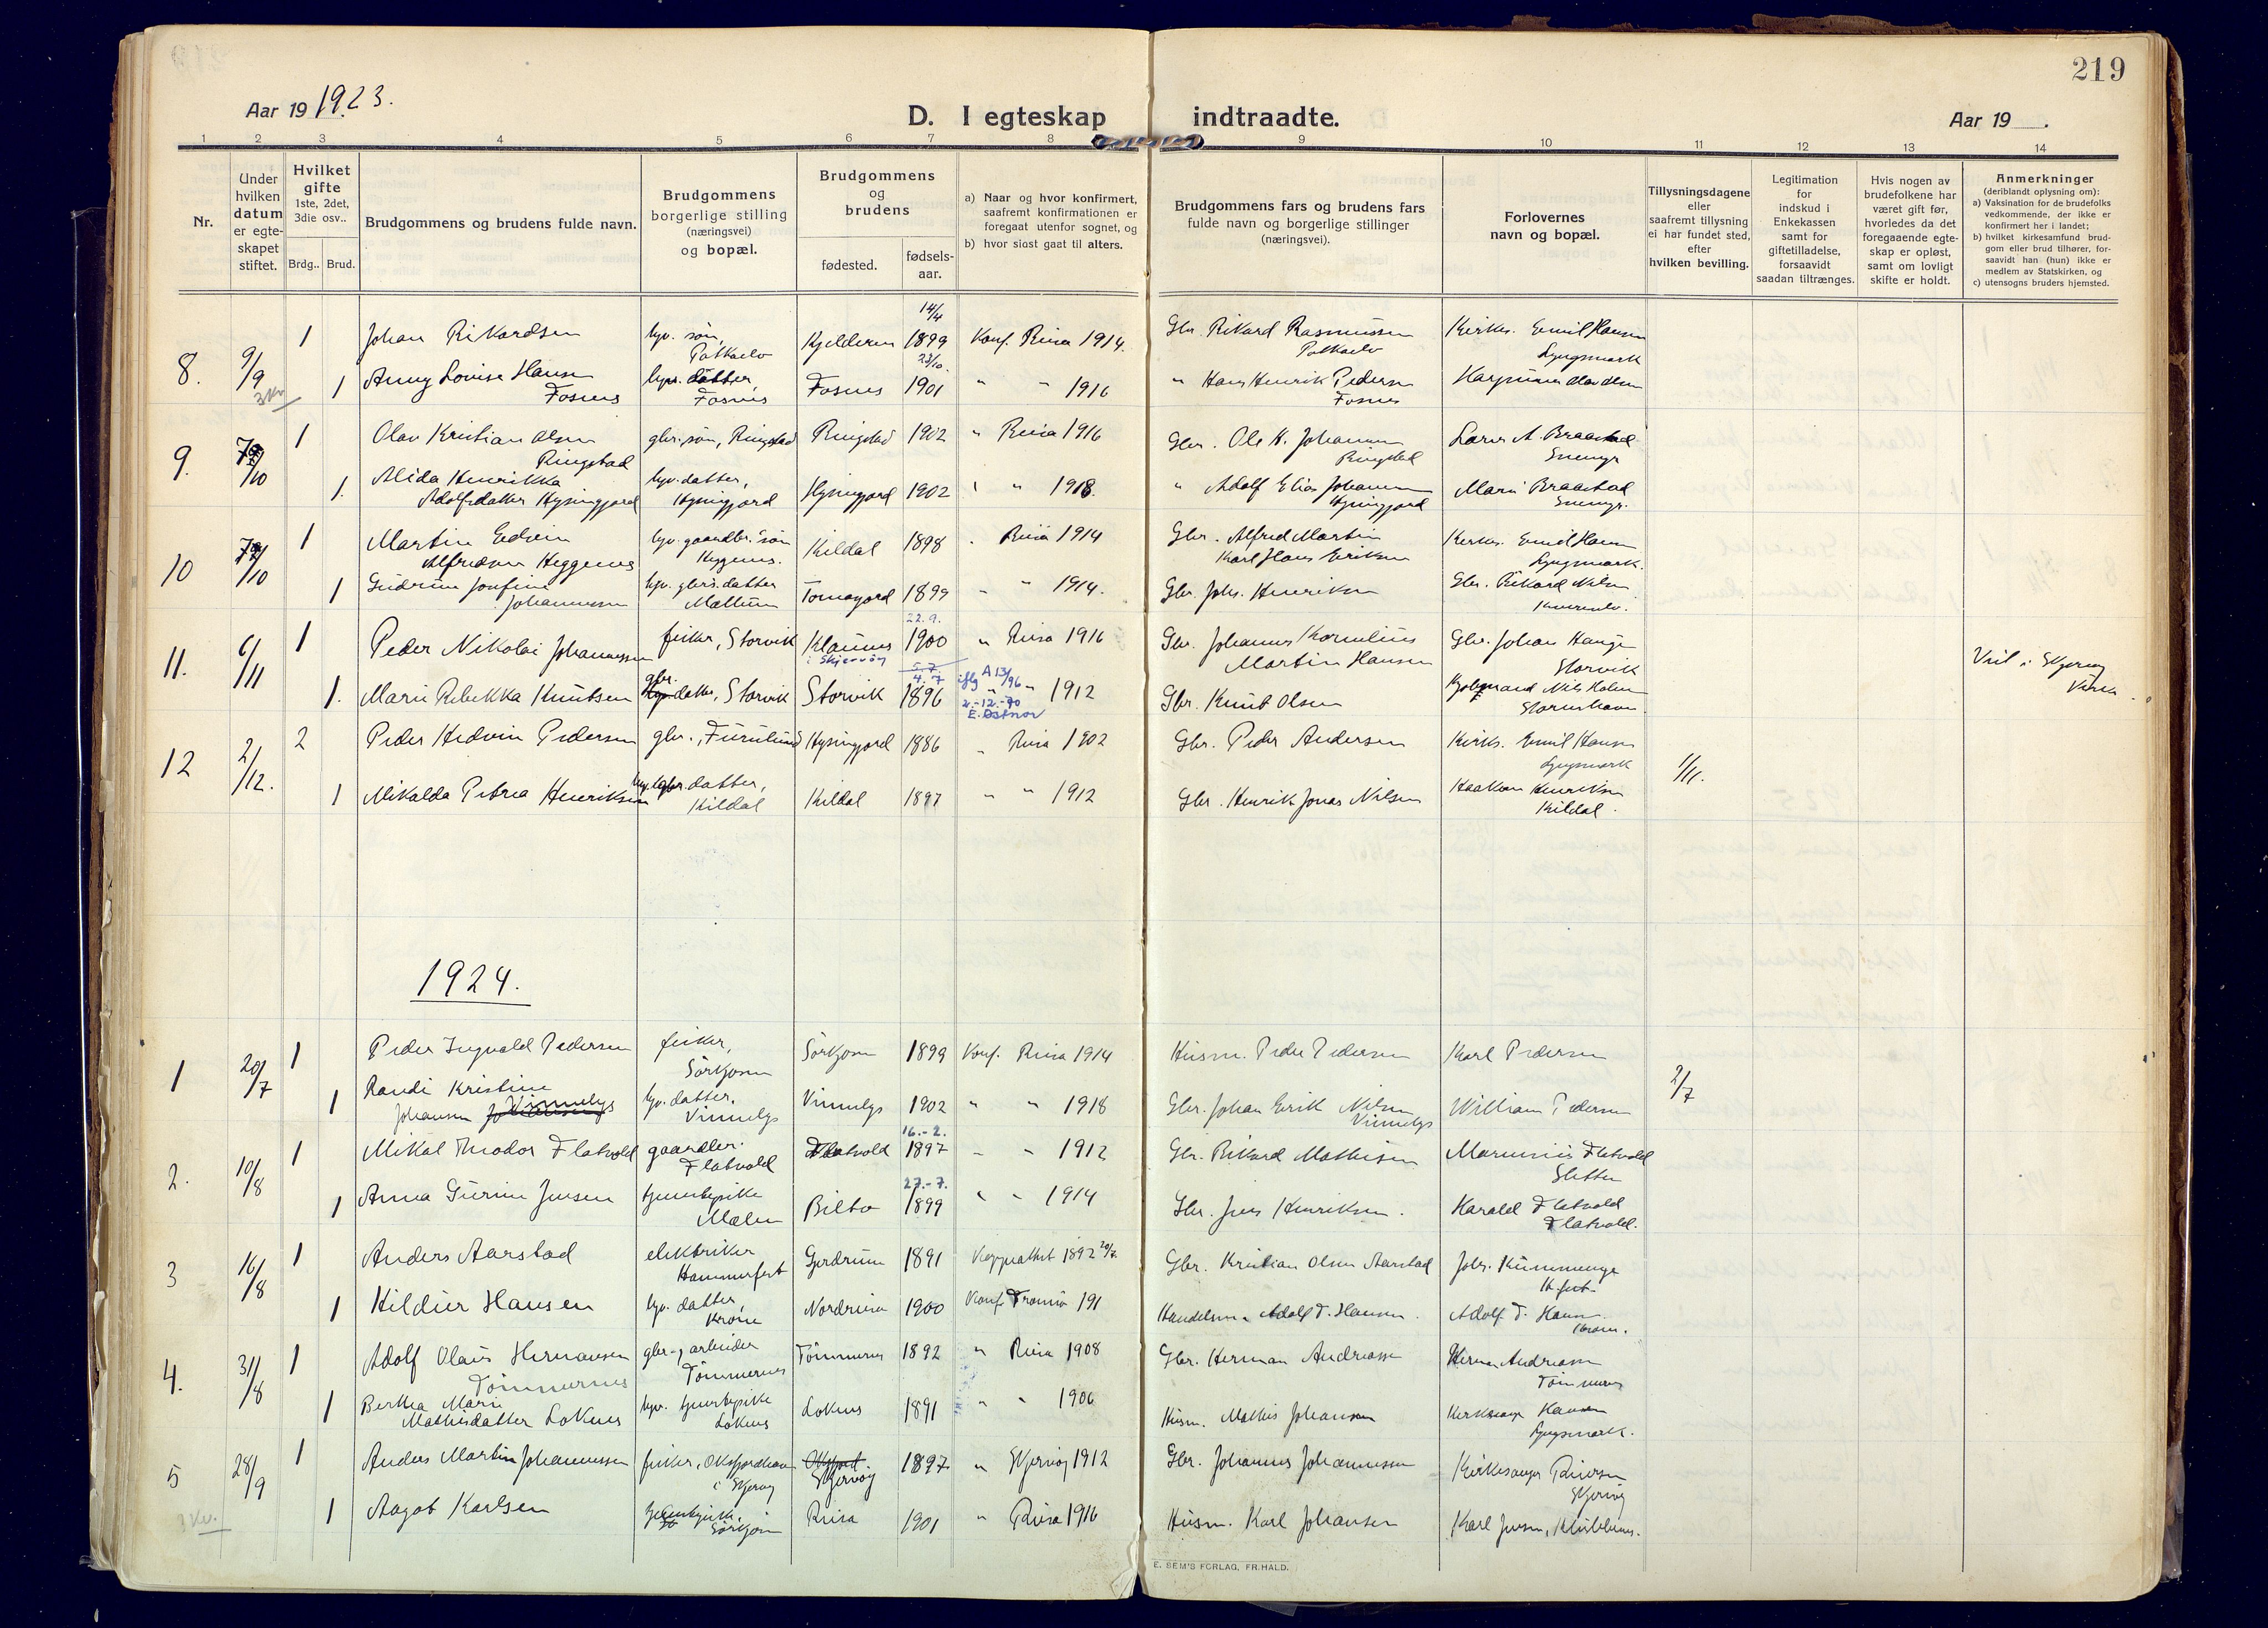 219
Aar 19 1923.
D. I egteskap indtraadte.
Aar 19 .
1 2 3 4 5 6 7 8 9 10 11 12 13 14
Nr.
Under hvilken datum er egteskapet stiftet.
Hvilket gifte 1ste, 2det, 3die osv..
Brdg.. Brud.
Brudgommens og brudens fulde navn.
Brudgommens borgerlige stilling (næringsvei) og bopæl.
Brudgommens og brudens
fødested. fødsels-aar.
a) Naar og hvor konfirmert, saafremt konfirmationen er foregaat utenfor sognet, og
b) hvor sidst gaat til alters.
Brudgommens fars og brudens fars fulde navn og borgerlige stillinger (næringsvei).
Forlovernes navn og bopæl.
Tillysningsdagene eller saafremt tillysning ei har fundet sted, efter hvilken bevilling.
Legitimation for indskud i Enkekassen samt for giftetilladelse, forsaavidt saadan tiltrænges.
Hvis nogen av brudefolkene har været gift før, hvorledes da det foregaaende egteskap er opløst, samt om lovligt skifte er holdt.
Anmerkninger (deriblandt oplysning om):
a) Vaksination for de brudefolks vedkommende, der ikke er konfirmert her i landet;
b) hvilket kirkesamfund brudgom eller brud tilhører, forsaavidt han (hun) ikke er medlem av Statskirken, og
c) utensogns bruders hjemsted.
8. 9/9 1 Johan Rikardsen 14/4 Kjelderen 1899 Konf. Reisa 1914. Gbr. Rikard Rasmussen Kirkes. Emil Hansen Lyngsmark
1 Anny Lovise Hansen Fosnes datter, Fosnes Fosnes 23/10. 1901 " " 1916 " Hans Henrik Pedersen Fosnes
9. 1 Olav Kristian Olsen Ringstad gbr. søn, Ringstad Ringstad 1902 " Reisa 1916 Gbr. Ole H. Johansen Ringstad
1. Alida Henrikka Adolfsdatter Hysingjord datter, Hysingjord Hysingjord 1902 " " 1918. " Adolf Elias Johansen Hysingjord Marie Braastad
10 1 Martin Edvin Alfredsen Heggenes Kildal 1898 . Reisa 1914 Gbr. Alfred Martin Karl Hans Eriksen Kirkes. Emil Hansen Lyngsmark.
1 Gudrun Josfine Johannessen gbrs. datter 1899 " " 1914. Gbr. Johs. Henriksen Gbr. Rikard Nilsen
11. 6/11 1 Peder Nikolai Johannessen fisker, Storvik i Skjervøy 22.9. 1900 " Reisa 1916 Gbr. Johannes Kornelius Martin Hansen Gbr. Johan Hauge Storvik
1. Marie Rebekka Knutsen gbr. datter, Storvik Storvik 5.7 4.7 1896 iflg A 13/96 2.-12.-70 " " 1912 Gbr. Knut Olsen
Viel i Skjervøy Kirke
12 2/12. 2 Peder Hedvin Pedersen gbr., Furulund Hysingjord 1886 " Reisa 1902 Gbr. Peder Andersen Kirks. Emil Hansen Lyngsmark 1/11.
1 Mikalda Petrea Henriksen datter, Kildal Kildal 1897 " " 1912 Gbr. Henrik Jonas Nilsen Haakon Henriksen Kildal.
1924.
1 20/7 1 Peder Ingvald Pedersen fisker, Sørkjosen Sørkjosen 1899 Konf. Reisa 1914 Husm. Peder Pedersen Karl Pedersen 2/7
1 Randi Kristine Johansen Vinnelys datter, Vinnelys Vinnelys 1902 " " 1918 Gbr. Johan Erik Nilsen Vinnelys William Pedersen
2. 10/8 1 Mikal Theodor Flatvold gaardbr. Flatvold Flatvold 16.-2. 1897 " " 1912 Gbr. Rikard Mathisen Flatvold
1 Anna Gurine Jensen tjenestepike Bilto 27.-7. 1899 " " 1914 Gbr. Jens Henriksen. Harald Flatvold Flatvold.
3 16/8 1 Anders Aarstad elektriker Hammerfest Gjerdrum 1891 Koppeattest 1892 Gbr. Kristian Olsen Aarstad H.fest
1 Hildur Hansen datter, Nordreisa 1900 Konf. Tromsø 191 Handelsm. Adolf T. Hansen. Adolf T. Hansen
4. 31/8 1 Adolf Olaus Hermansen Tømmernes gbr., arbeider Tømmernes Tømmernes 1892 " Reisa 1908 Gbr. Herman Andreassen Herman Andreassen Tømmernes
1 Bertha Marie Mathisdatter Loknes tjenestepike Loknes Loknes 1891 " " 1906 Husm. Mathis Johansen Kirkesanger Hansen Lyngsmark.
5 28/9 1 Anders Martin Johannessen fisker, i Skjervøy Skjervøy 1897 " Skjervøy 1912 Gbr. Johannes Johannessen Kirkesanger Skjervøy
1 Aagot Karlsen Sørkjosen Reisa 1901 " Reisa 1916 Husm. Karl Johansen Karl Jensen,
E. SEM'S FORLAG, FR.HALD.